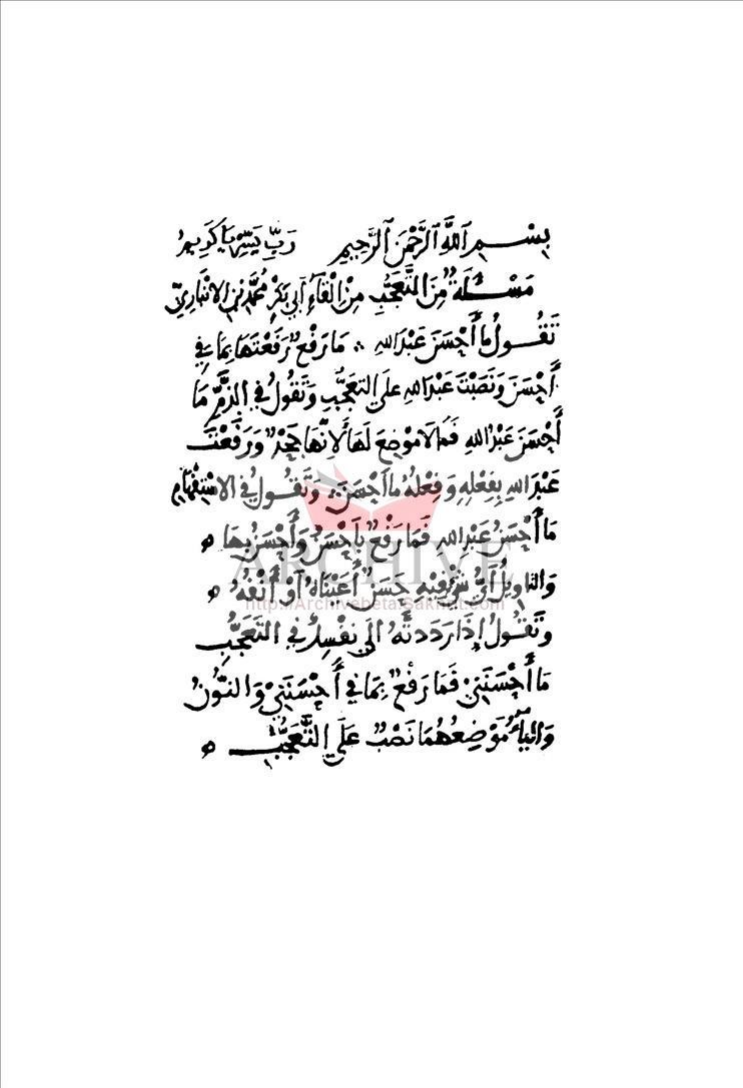 بِسْمِ ٱللَّهِ ٱلرَّحْمٰنِ ٱلرَّحِيمِ رَبِّ يَسِّرْ يَا كَرِيمُ
مَسْئَلَةٌ مِنَ التَّعَجُّبِ مِنْ إِلْقَاءِ أَبِي بَكْرٍ مُحَمَّد بْنِ الأَنْبَارِيِّ
تَقُولُ مَا أَحْسَنَ عَبْدَ اللهِ ؞ مَا رَفْعٌ رَفَعْتَهَا بِمَا فِي
أَحْسَنَ وَنَصَبْتَ عَبْدَ اللهِ عَلَى التَعَجُّبِ وَتَقُولُ فِي الذَّمِّ مَا
أَحْسَنَ عَبْدُ اللهِ فَمَا لَا مَوْضِعَ لَهَا لِأَنَّهَا جَحْدٌ وَرَفَعْتَ
عَبْدَ اللهِ بِفِعْلِهِ وَفِعْلُهُ مَا أَحْسَنَ ؞ وَتَقُولُ فِي الاسْتِفْهَامِ
مَا أَحْسَنُ عَبْدِ اللهِ فَمَا رَفْعٌ بِأَحْسَنُ وَأَحْسَنُ بِهَا ه
وَالتاوِيلُ أَيُّ شَيْءٍ فِيهِ حَسَنٌ أَعَيْنَاهُ أَوْ أَنْفُهُ ه
وَتَقُولُ إِذَا رَدَدتَهُ الَى نَفْسِكَ فِي التَعَجُّبِ
مَا أَحْسَنَنِي فَمَا رَفْعٌ بِمَا فِي أَحْسَنَنِي وَالنُّونُ
وَاليَاءُ مَوْضِعُهُمَا نَصْبٌ عَلَى التَّعَجُّبِ ه
ARCHIVE
http://Archivebeta.Sakhrit.com